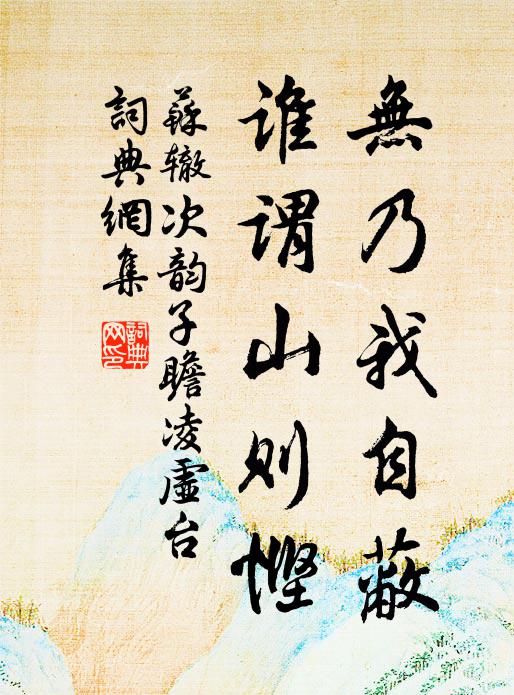 無乃我自蔽
誰謂山則慳
蘇辙次韵子瞻凌虛台
詞典網集
詞典
网印